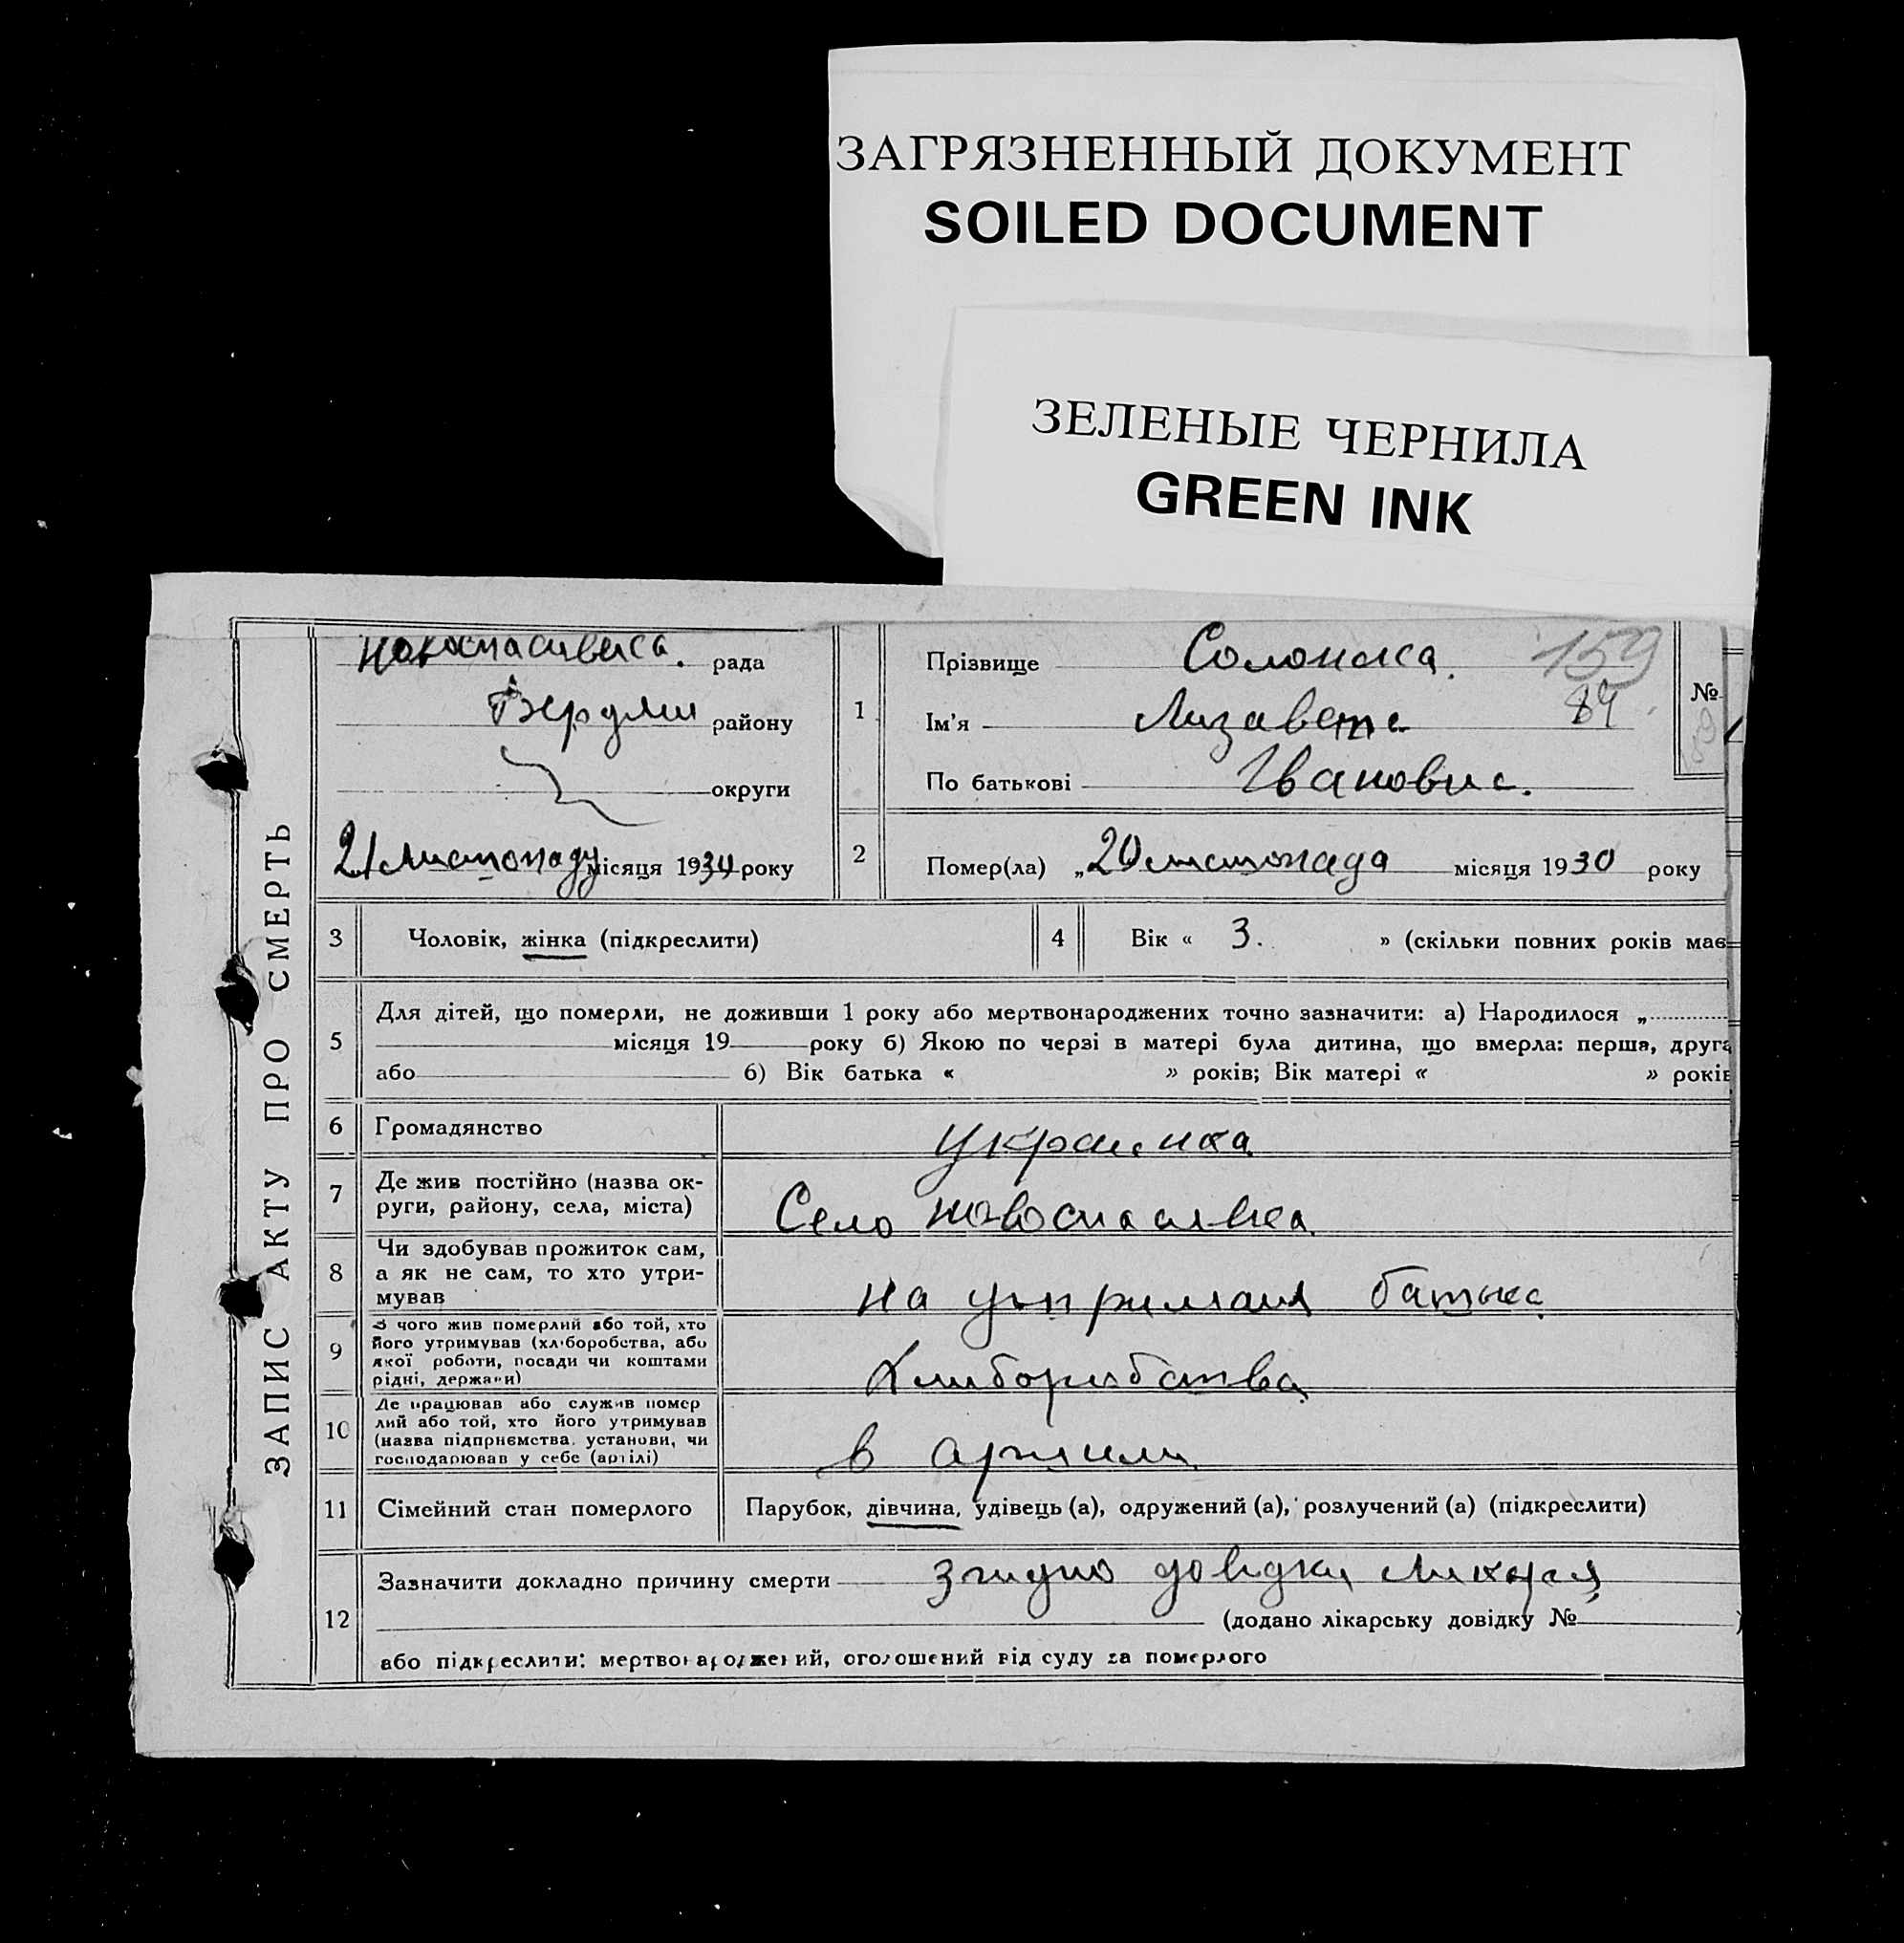 ЗАГРЯЗНЕННЫЙ ДОКУМЕНТ
SOILED DOCUMENT
ЗЕЛЕНЫЕ ЧЕРНИЛА
GREEN INK
ЗАПИС АКТУ ПРО СМЕРТЬ
рада
району
округи
21 Листопаду місяця 1930 року
1
Прізвище Солонска. 159
Ім'я Лизавета 84
По батькові Івановна.
№
2 Помер(ла) „20 листопада місяця 1930 року
3 Чоловік, жінка (підкреслити)
4 Вік « 3. » (скільки повних років має
5 Для дітей, що померли, не доживши 1 року або мертвонароджених точно зазначити: а) Народилося „
місяця 19 року б) Якою по черзі в матері була дитина, що вмерла: перша, друга
або б) Вік батька « » років; Вік матері « » років
6 Громадянство украинка
7 Де жив постійно (назва ок-
руги, району, села, міста) Село Новоспасивка
8 Чи здобував прожиток сам,
а як не сам, то хто утри-
мував на утримани батька
9 З чого жив померлий або той, хто
його утримував (хліборобства, або
якої роботи, посади чи коштами
рідні, держави) Хлиборобства
10 Де працював або служив помер
лий або той, хто його утримував
(назва підприємства, установи, чи
господарював у себе (артілі) в артили
11 Сімейний стан померлого Парубок, дівчина, удівець (а), одружений (а), розлучений (а) (підкреслити)
12 Зазначити докладно причину смерти згидно довидки ликаря
(додано лікарську довідку № )
або підкреслити: мертвонароджений, оголошений від суду за померлого